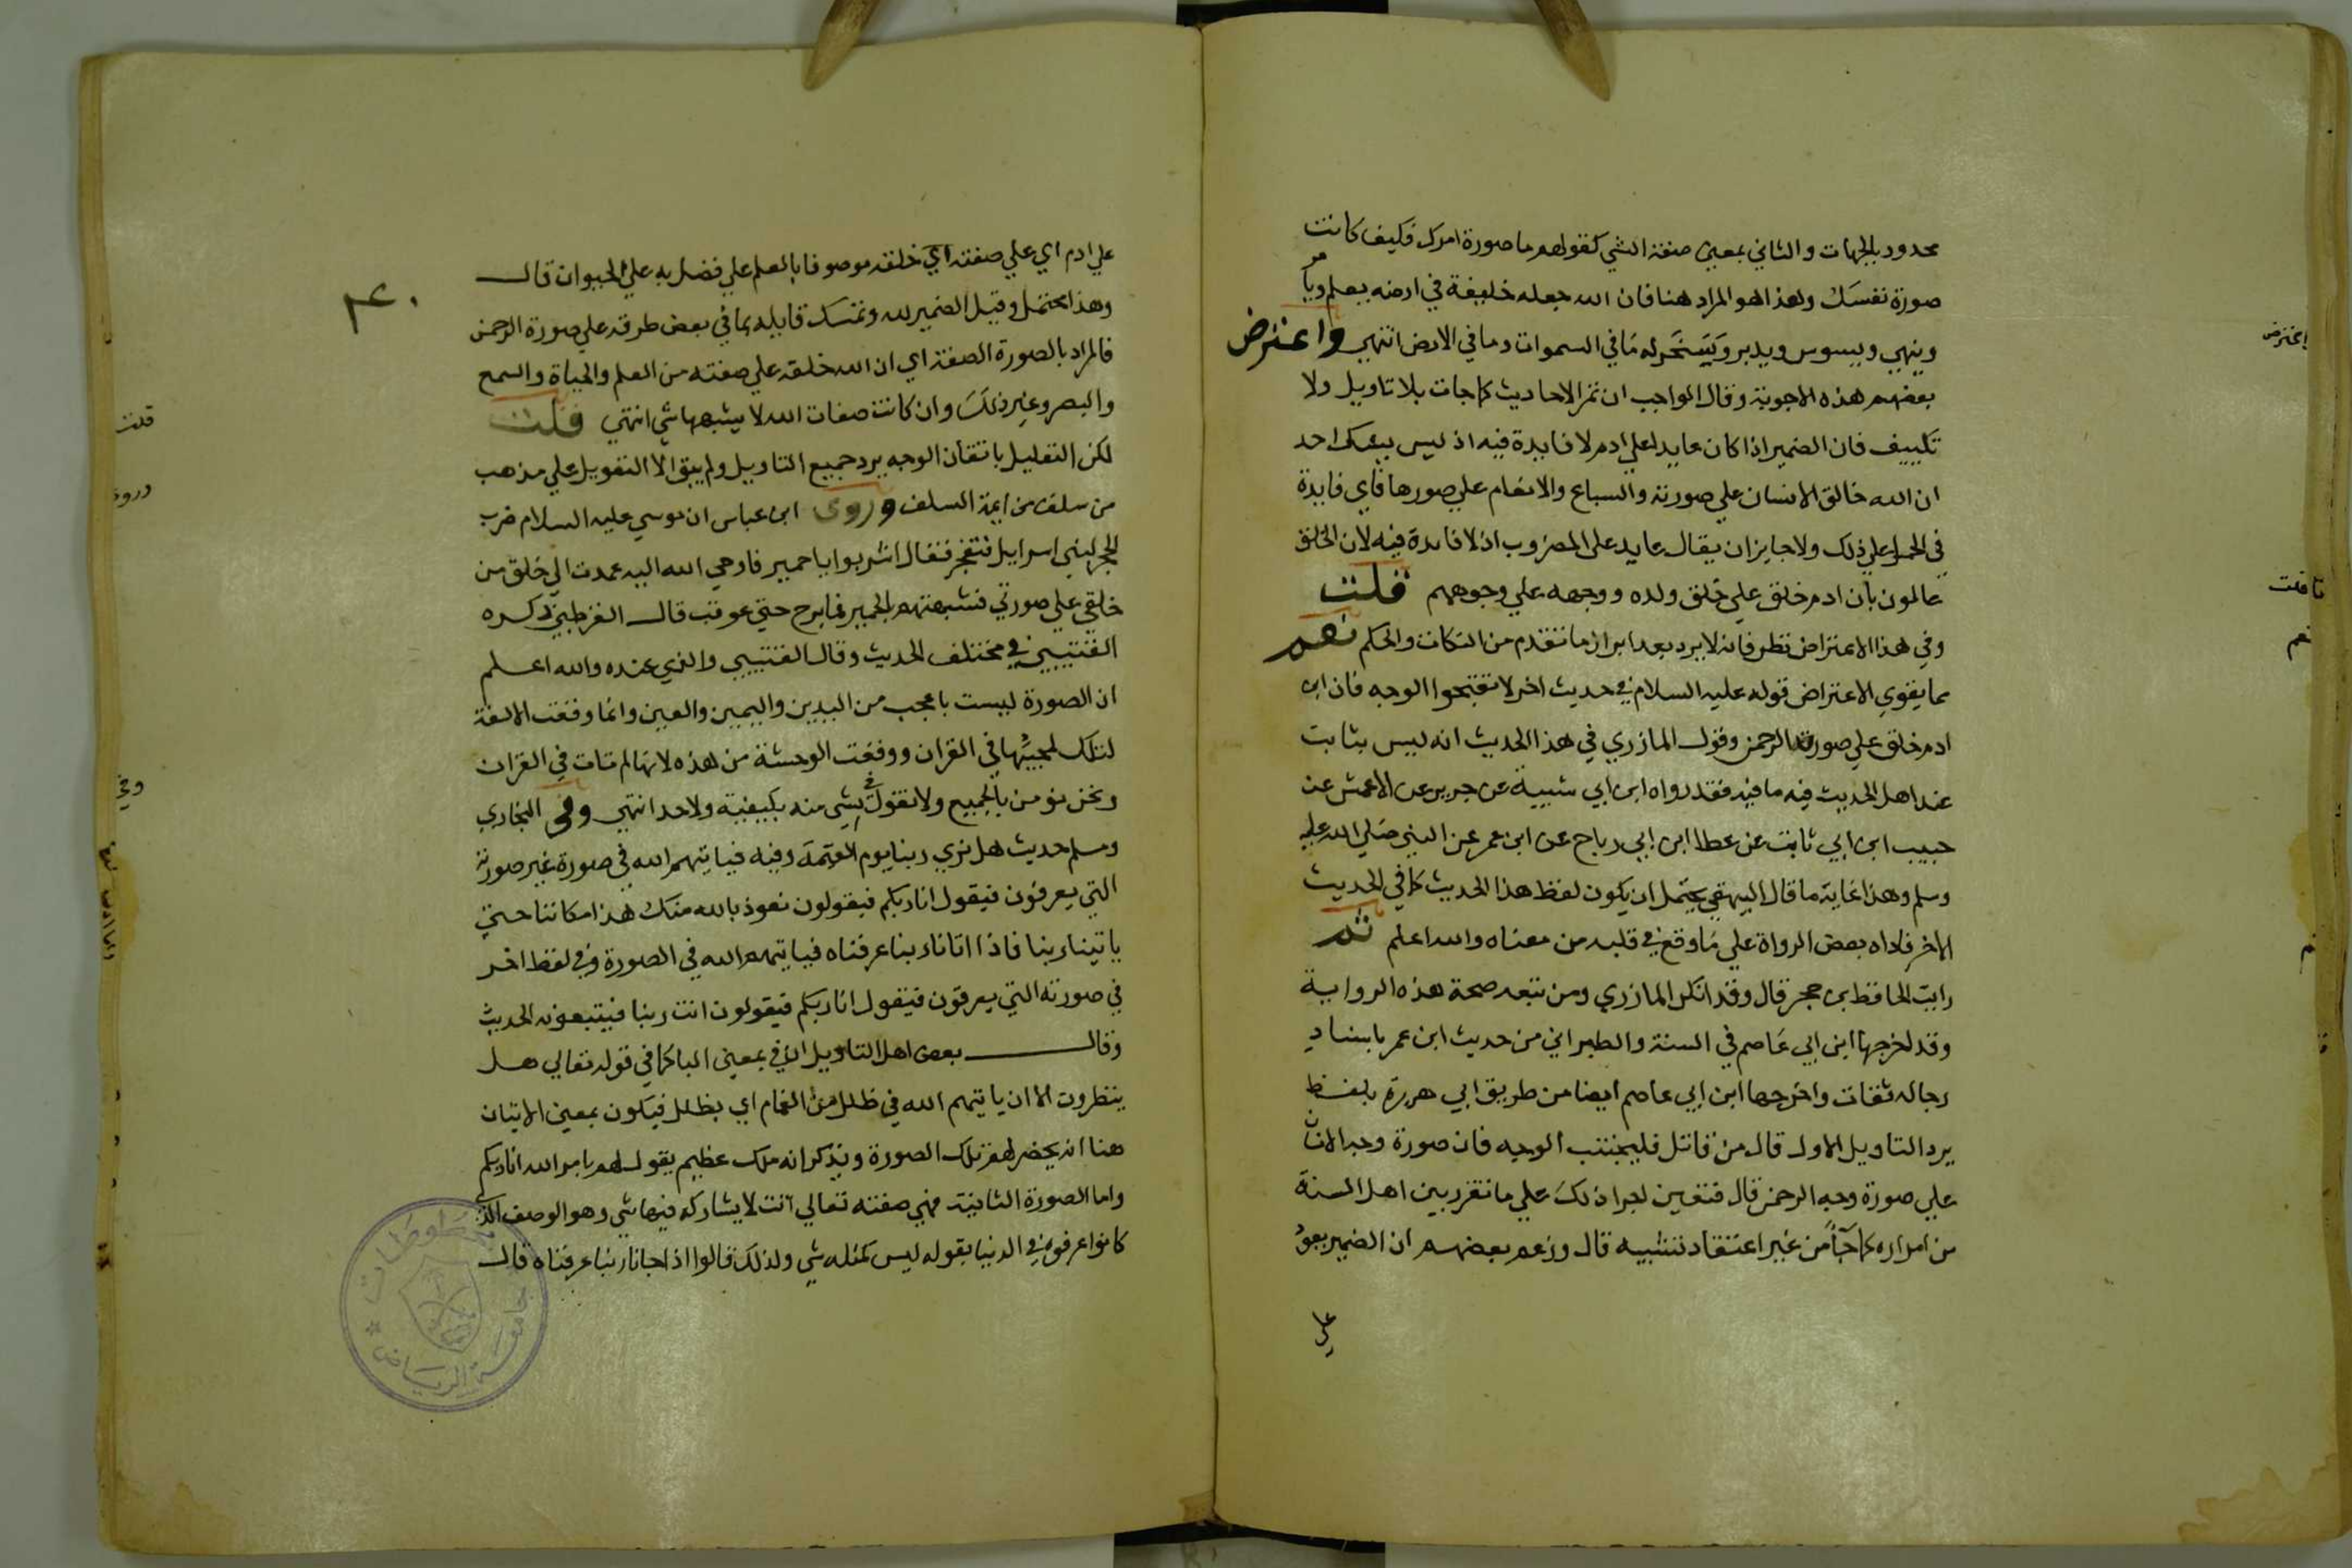 محدود بالجهات والثاني بمعني صفة الشي كقولهم ما صورة امرك وكيف كانت
صورة نفسك وهذا هو المراد هنا فان الله جعله خليفة في ارضه يعلم ويامر
وينهي ويسوس ويدبر ويسخر له ما في السموات وما في الارض انتهي واعترض
بعضهم هذه الاجوبة وقال الواجب ان تمر الاحاديث كما جات بلا تاويل ولا
تكييف فان الضمير اذا كان عايدا علي ادم لا فايدة فيه اذ ليس يشك احد
ان الله خالق الانسان علي صورته والسباع والانعام علي صورها فاي فايدة
في الحمل علي ذلك ولا جايز ان يقال عايد علي المضروب اذ لا فايدة فيه لان الخلق
عالمون بان ادم خلق علي خلق ولده ووجهه علي وجوههم قلت
وفي هذا الاعتراض نظر فانه لا يرد بعد ابراز ما تقدم من النكات والحكم نعم
مما يقوي الاعتراض قوله عليه السلام في حديث اخر لا تقبحوا الوجه فان ابن
ادم خلق علي صورة الرحمن وقول المازري في هذا الحديث انه ليس بثابت
عند اهل الحديث فيه ما فيه فقد رواه ابن ابي شيبة عن جرير عن الاعمش عن
حبيب ابن ابي ثابت عن عطا ابن ابي رباح عن ابن عمر عن النبي صلي الله عليه
وسلم وهذا غاية ما قال البيهقي يحتمل ان يكون لفظ هذا الحديث كما في الحديث
الاخر فاداه بعض الرواة علي ما وقع في قلبه من معناه والله اعلم ثم
رايت الحافظ بن حجر قال وقد انكر المازري ومن تبعه صحة هذه الرواية
وقد اخرجها ابن ابي عاصم في السنة والطبراني من حديث ابن عمر باسناد
رجاله ثقات واخرجها ابن ابي عاصم ايضا من طريق ابي هريرة بلفظ
يرد التاويل الاول قال من قاتل فليجتنب الوجه فان صورة وجه الانسان
علي صورة وجه الرحمن قال فتعين اجرا ذلك علي ما تقرر بين اهل السنة
من امراره كما جآ من غير اعتقاد تشبيه قال وزعم بعضهم ان الضمير يعود
علي
واعترض
قلت
نعم
ثم
علي ادم اي علي صفته اي خلقه موصوفا بالعلم علي فضل به علي الحيوان قال
وهذا محتمل وقيل الضمير لله وتمسك قايله بما في بعض طرقه علي صورة الرحمن
فالمراد بالصورة الصفة اي ان الله خلقه علي صفته من العلم والحياة والسمع
والبصر وغير ذلك وان كانت صفات الله لا يشبهها شي انتهي قلت
لكن التعليل باتقان الوجه يرد جميع التاويل ولم يبق الا التعويل علي مذهب
من سلف من ايمة السلف وروي ابن عباس ان موسي عليه السلام ضرب
الحجر لبني اسرايل فتفجر فقال اشربوا يا حمير فاوحي الله اليه عمدت الي خلق من
خلقي علي صورتي فشبهتهم بالحمير فما برح حتي عوقب قال القرطبي ذكره
القتيبي في مختلف الحديث وقال القتيبي والذي عنده والله اعلم
ان الصورة ليست باعجب من اليدين واليمين والعين وانما وقعت الالفة
لتلك لمجيئها في القران ووقعت الوحشة من هذه لانها لم تات في القران
ونحن نومن بالجميع ولا نقول في شي منه بكيفية ولا حد انتهي وفي البخاري
ومسلم حديث هل نري ربنا يوم القيمة وفيه فياتيهم الله في صورة غير صورته
التي يعرفون فيقول انا ربكم فيقولون نعوذ بالله منك هذا مكاننا حتي
ياتينا ربنا فاذا اتانا ربنا عرفناه فياتيهم الله في الصورة وفي لفظ اخر
في صورته التي يعرفون فيقول انا ربكم فيقولون انت ربنا فيتبعونه الحديث
وقال بعض اهل التاويل ان في بمعني البا كما في قوله تعالي هل
ينظرون الا ان ياتيهم الله في ظلل من الغمام اي بظلل فيكون بمعني الاتيان
هنا انه يحضر لهم تلك الصورة ويذكر انه ملك عظيم يقول لهم بامر الله انا ربكم
واما الصورة الثانية فهي صفته تعالي التي لا يشاركه فيها شي وهو الوصف الذي
كانوا عرفوه في الدنيا بقوله ليس كمثله شي ولذلك قالوا اذا جانا ربنا عرفناه قال
٤٠
قلت
وروي
وفي
جامعة الرياض
مخطوطات